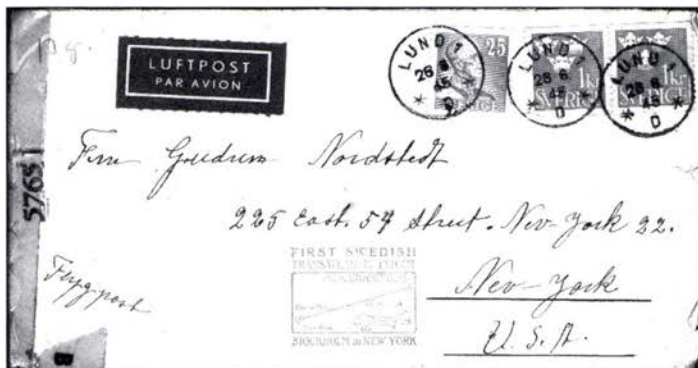 LUFTPOST
PAR AVION
25
LUND 1
26 6
45
* D *
LUND 1
26 6
45
* D *
1 KR
SVERIGE
LUND 1
26 6
45
* D *
1 KR
SVERIGE
5765
Fru Gudrun Nordstedt
225 East. 57 Street. Nev-York 22.
Flygpost
Nev-York
U.S.A.
FIRST SWEDISH
TRANSATLANTIC FLIGHT
STOCKHOLM to NEW YORK